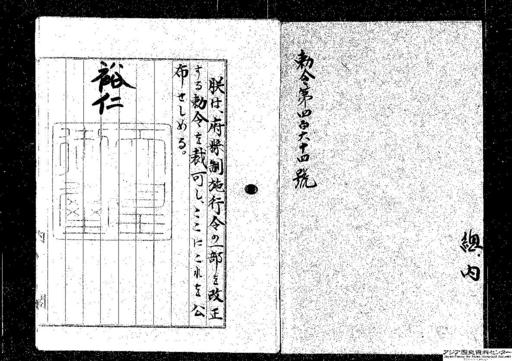 勅令第四百六十四號
總、内
朕は、府縣制施行令の一部を改正
する勅令を裁可し、ここにこれを公
布せしめる。
裕仁
アジア歴史資料センター